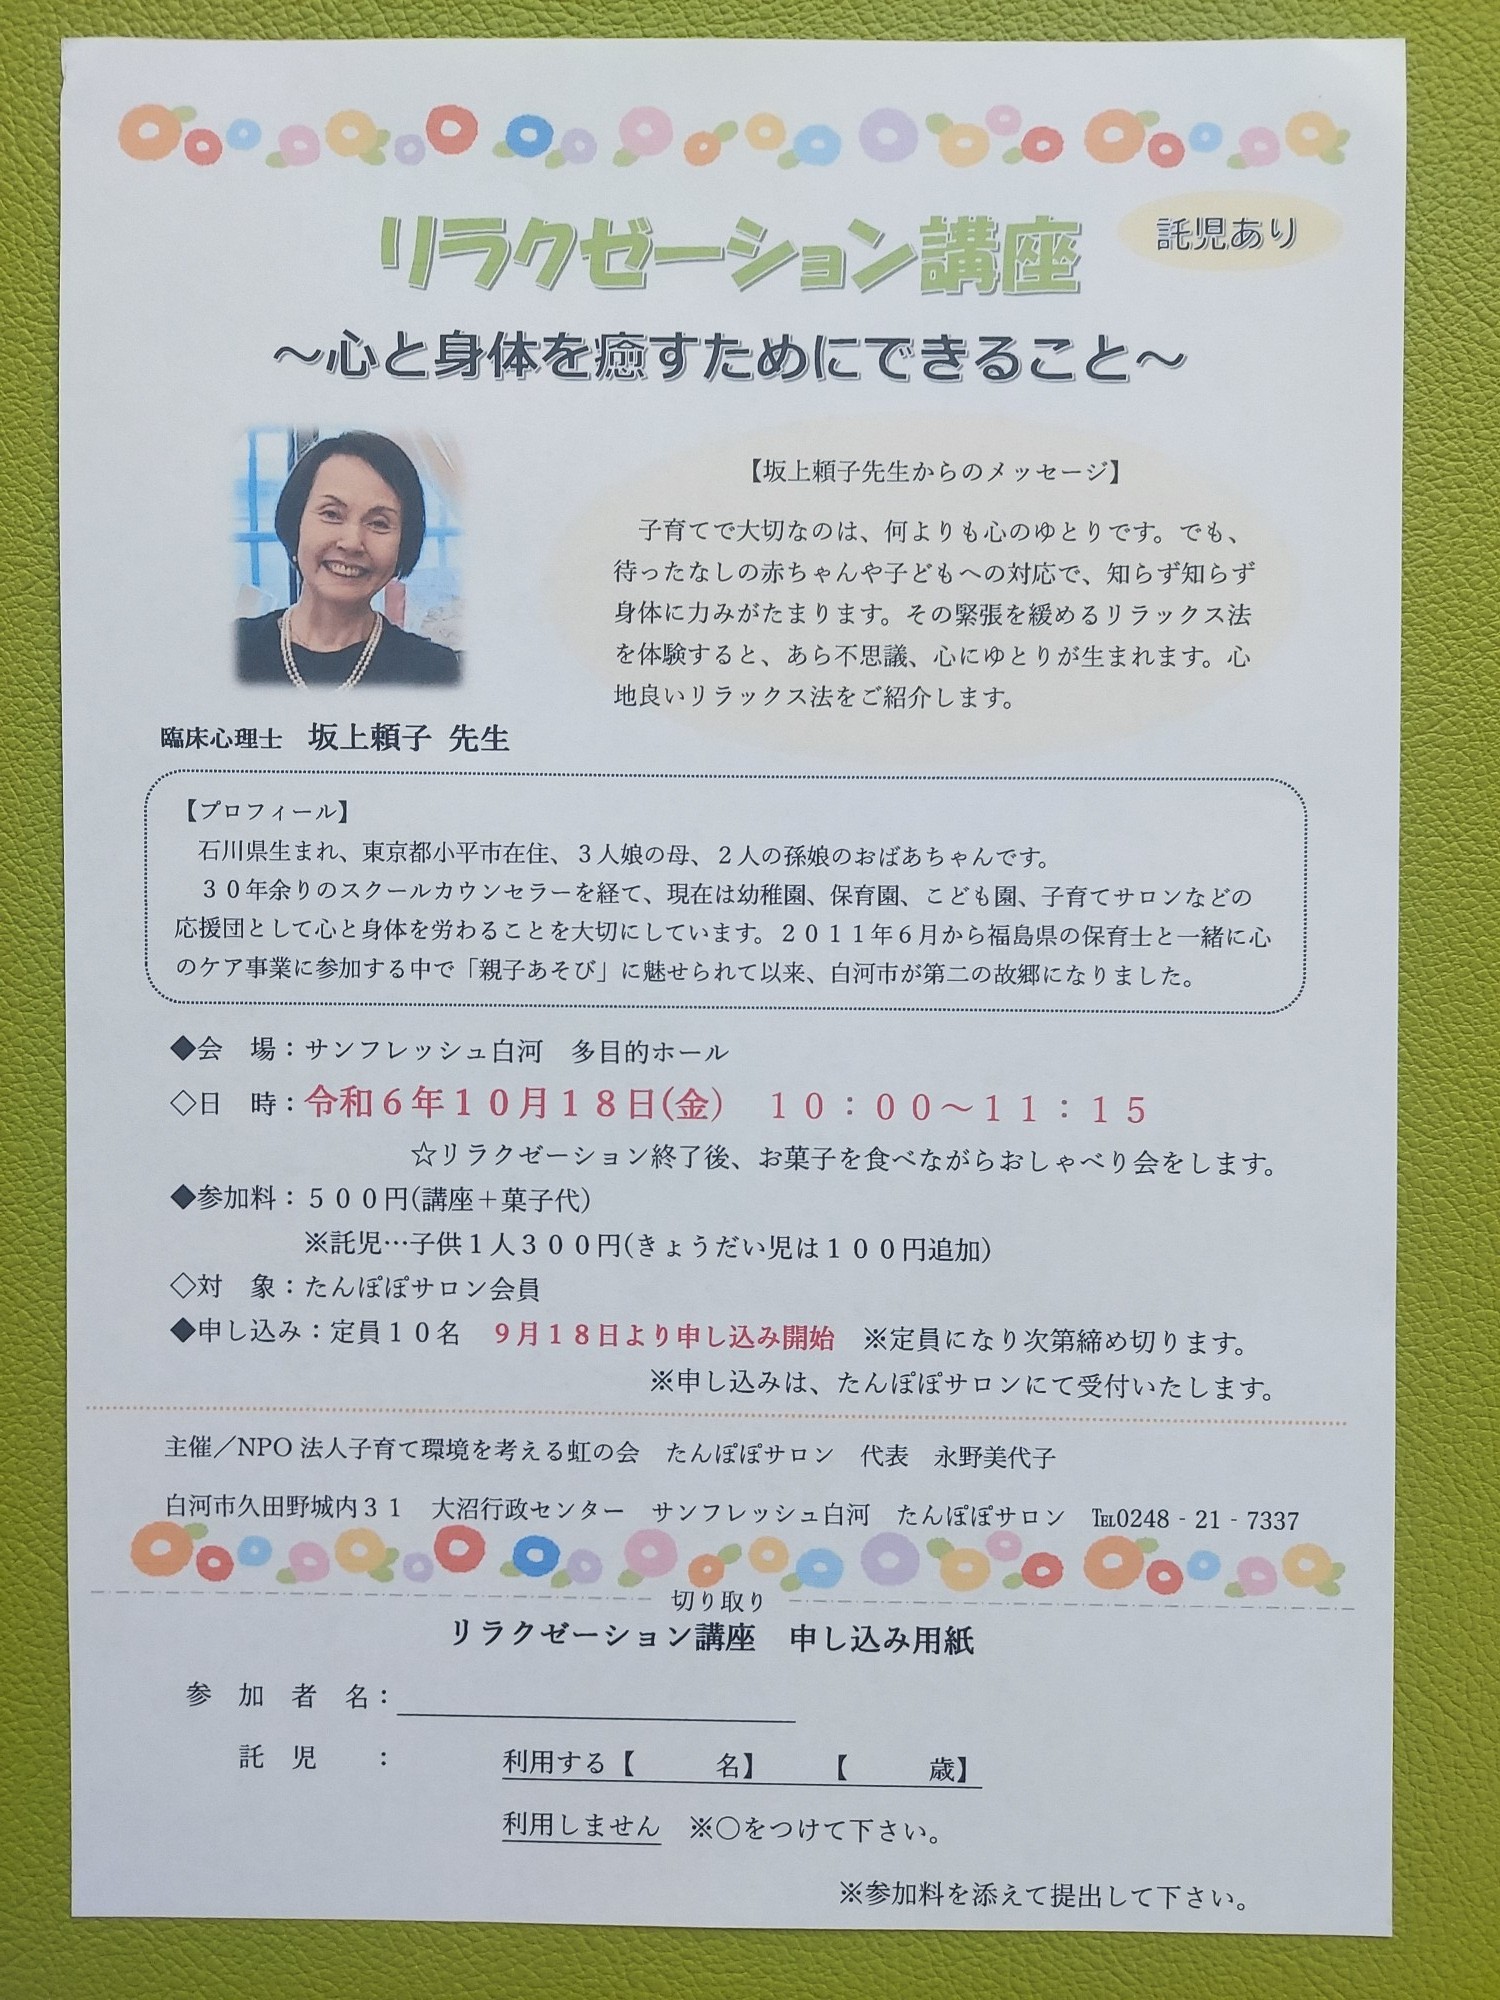 リラクゼーション講座
託児あり
～心と身体を癒すためにできること～
【坂上頼子先生からのメッセージ】
子育てで大切なのは、何よりも心のゆとりです。でも、
待ったなしの赤ちゃんや子どもへの対応で、知らず知らず
身体に力みがたまります。その緊張を緩めるリラックス法
を体験すると、あら不思議、心にゆとりが生まれます。心
地良いリラックス法をご紹介します。
臨床心理士　坂上頼子 先生
【プロフィール】
石川県生まれ、東京都小平市在住、３人娘の母、２人の孫娘のおばあちゃんです。
３０年余りのスクールカウンセラーを経て、現在は幼稚園、保育園、こども園、子育てサロンなどの
応援団として心と身体を労わることを大切にしています。２０１１年６月から福島県の保育士と一緒に心
のケア事業に参加する中で「親子あそび」に魅せられて以来、白河市が第二の故郷になりました。
◆会　場：サンフレッシュ白河　多目的ホール
◇日　時：令和６年１０月１８日(金)　１０：００～１１：１５
☆リラクゼーション終了後、お菓子を食べながらおしゃべり会をします。
◆参加料：５００円(講座＋菓子代)
※託児…子供１人３００円(きょうだい児は１００円追加)
◇対　象：たんぽぽサロン会員
◆申し込み：定員１０名　９月１８日より申し込み開始　※定員になり次第締め切ります。
※申し込みは、たんぽぽサロンにて受付いたします。
主催／NPO 法人子育て環境を考える虹の会　たんぽぽサロン　代表　永野美代子
白河市久田野城内３１　大沼行政センター　サンフレッシュ白河　たんぽぽサロン　℡0248‐21‐7337
切り取り
リラクゼーション講座　申し込み用紙
参　加　者　名：
託　児　　：　　利用する【　　　名】　【　　　歳】
利用しません　※○をつけて下さい。
※参加料を添えて提出して下さい。